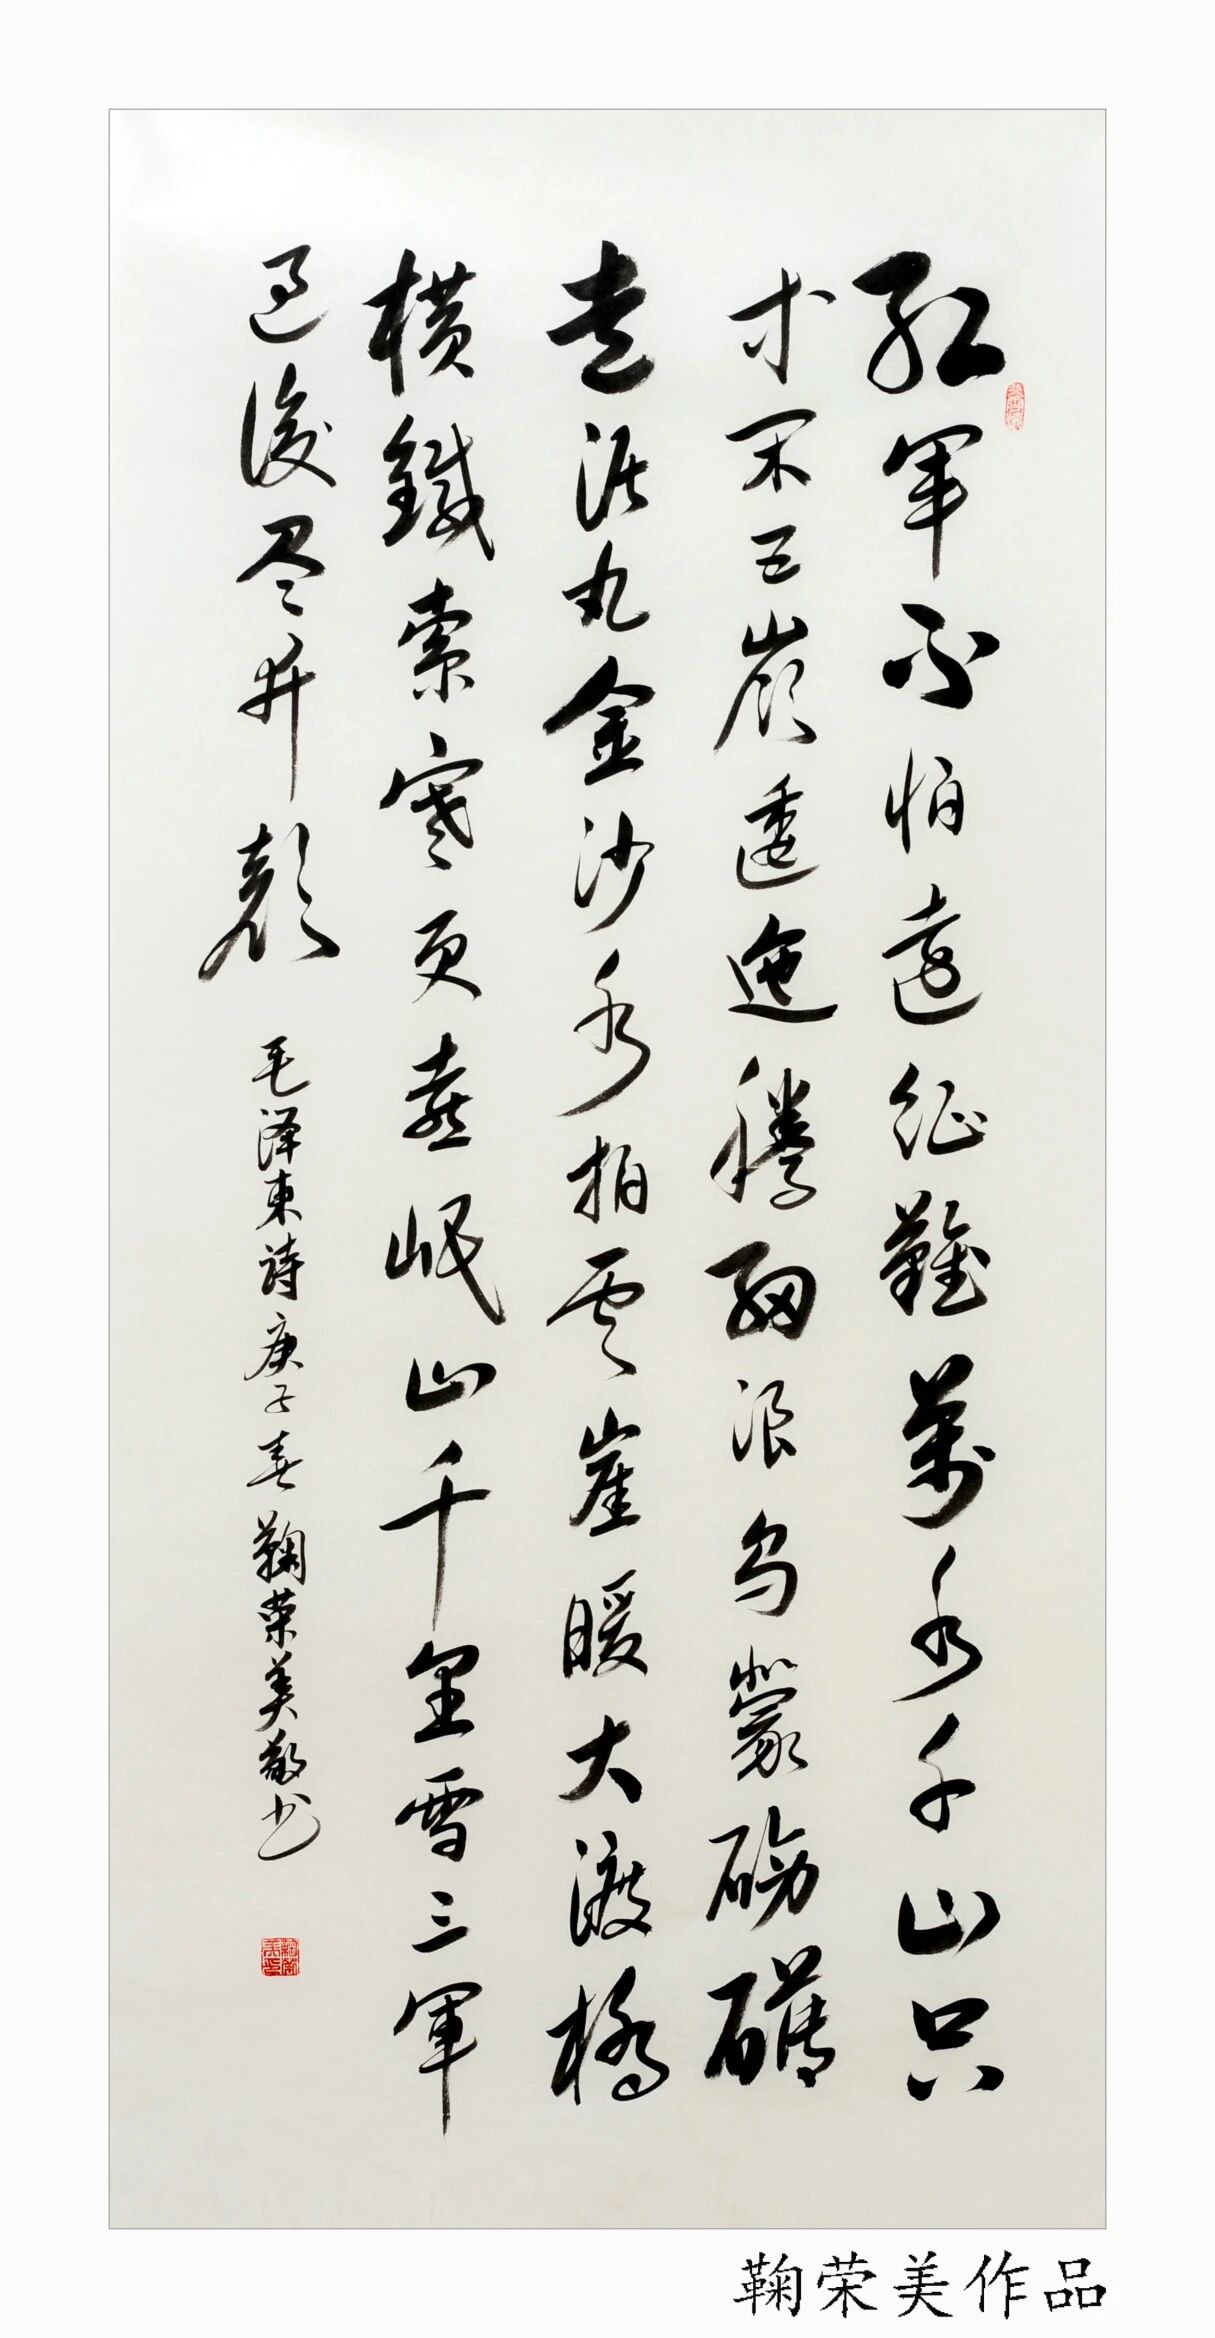 红軍不怕遠征難萬水千山只
等闲五嶺逶迤腾细浪乌蒙磅礴
走泥丸金沙水拍云崖暖大渡橋
横鐵索寒更喜岷山千里雪三軍
過後尽开颜
毛泽東诗庚子春鞠荣美敬书
鞠荣美作品